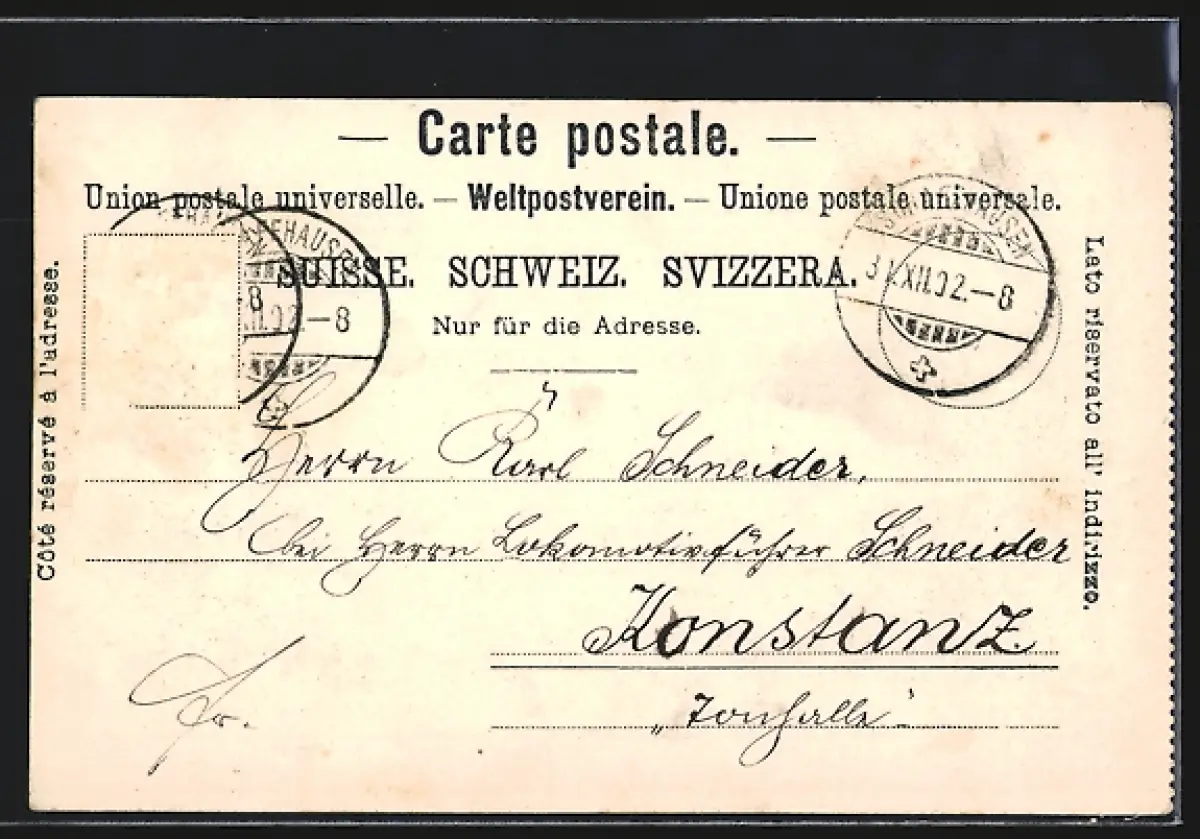 — Carte postale. —
Union postale universelle. — Weltpostverein. — Unione postale universale.
SUISSE. SCHWEIZ. SVIZZERA.
Nur für die Adresse.
Côté réservé à l'adresse.
Lato riservato all' indirizzo.
31.XII.02.—8
—8
Herrn Karl Schneider,
bei Herrn Lokomotivführer Schneider
Konstanz.
„Tonhalle"
Fr.